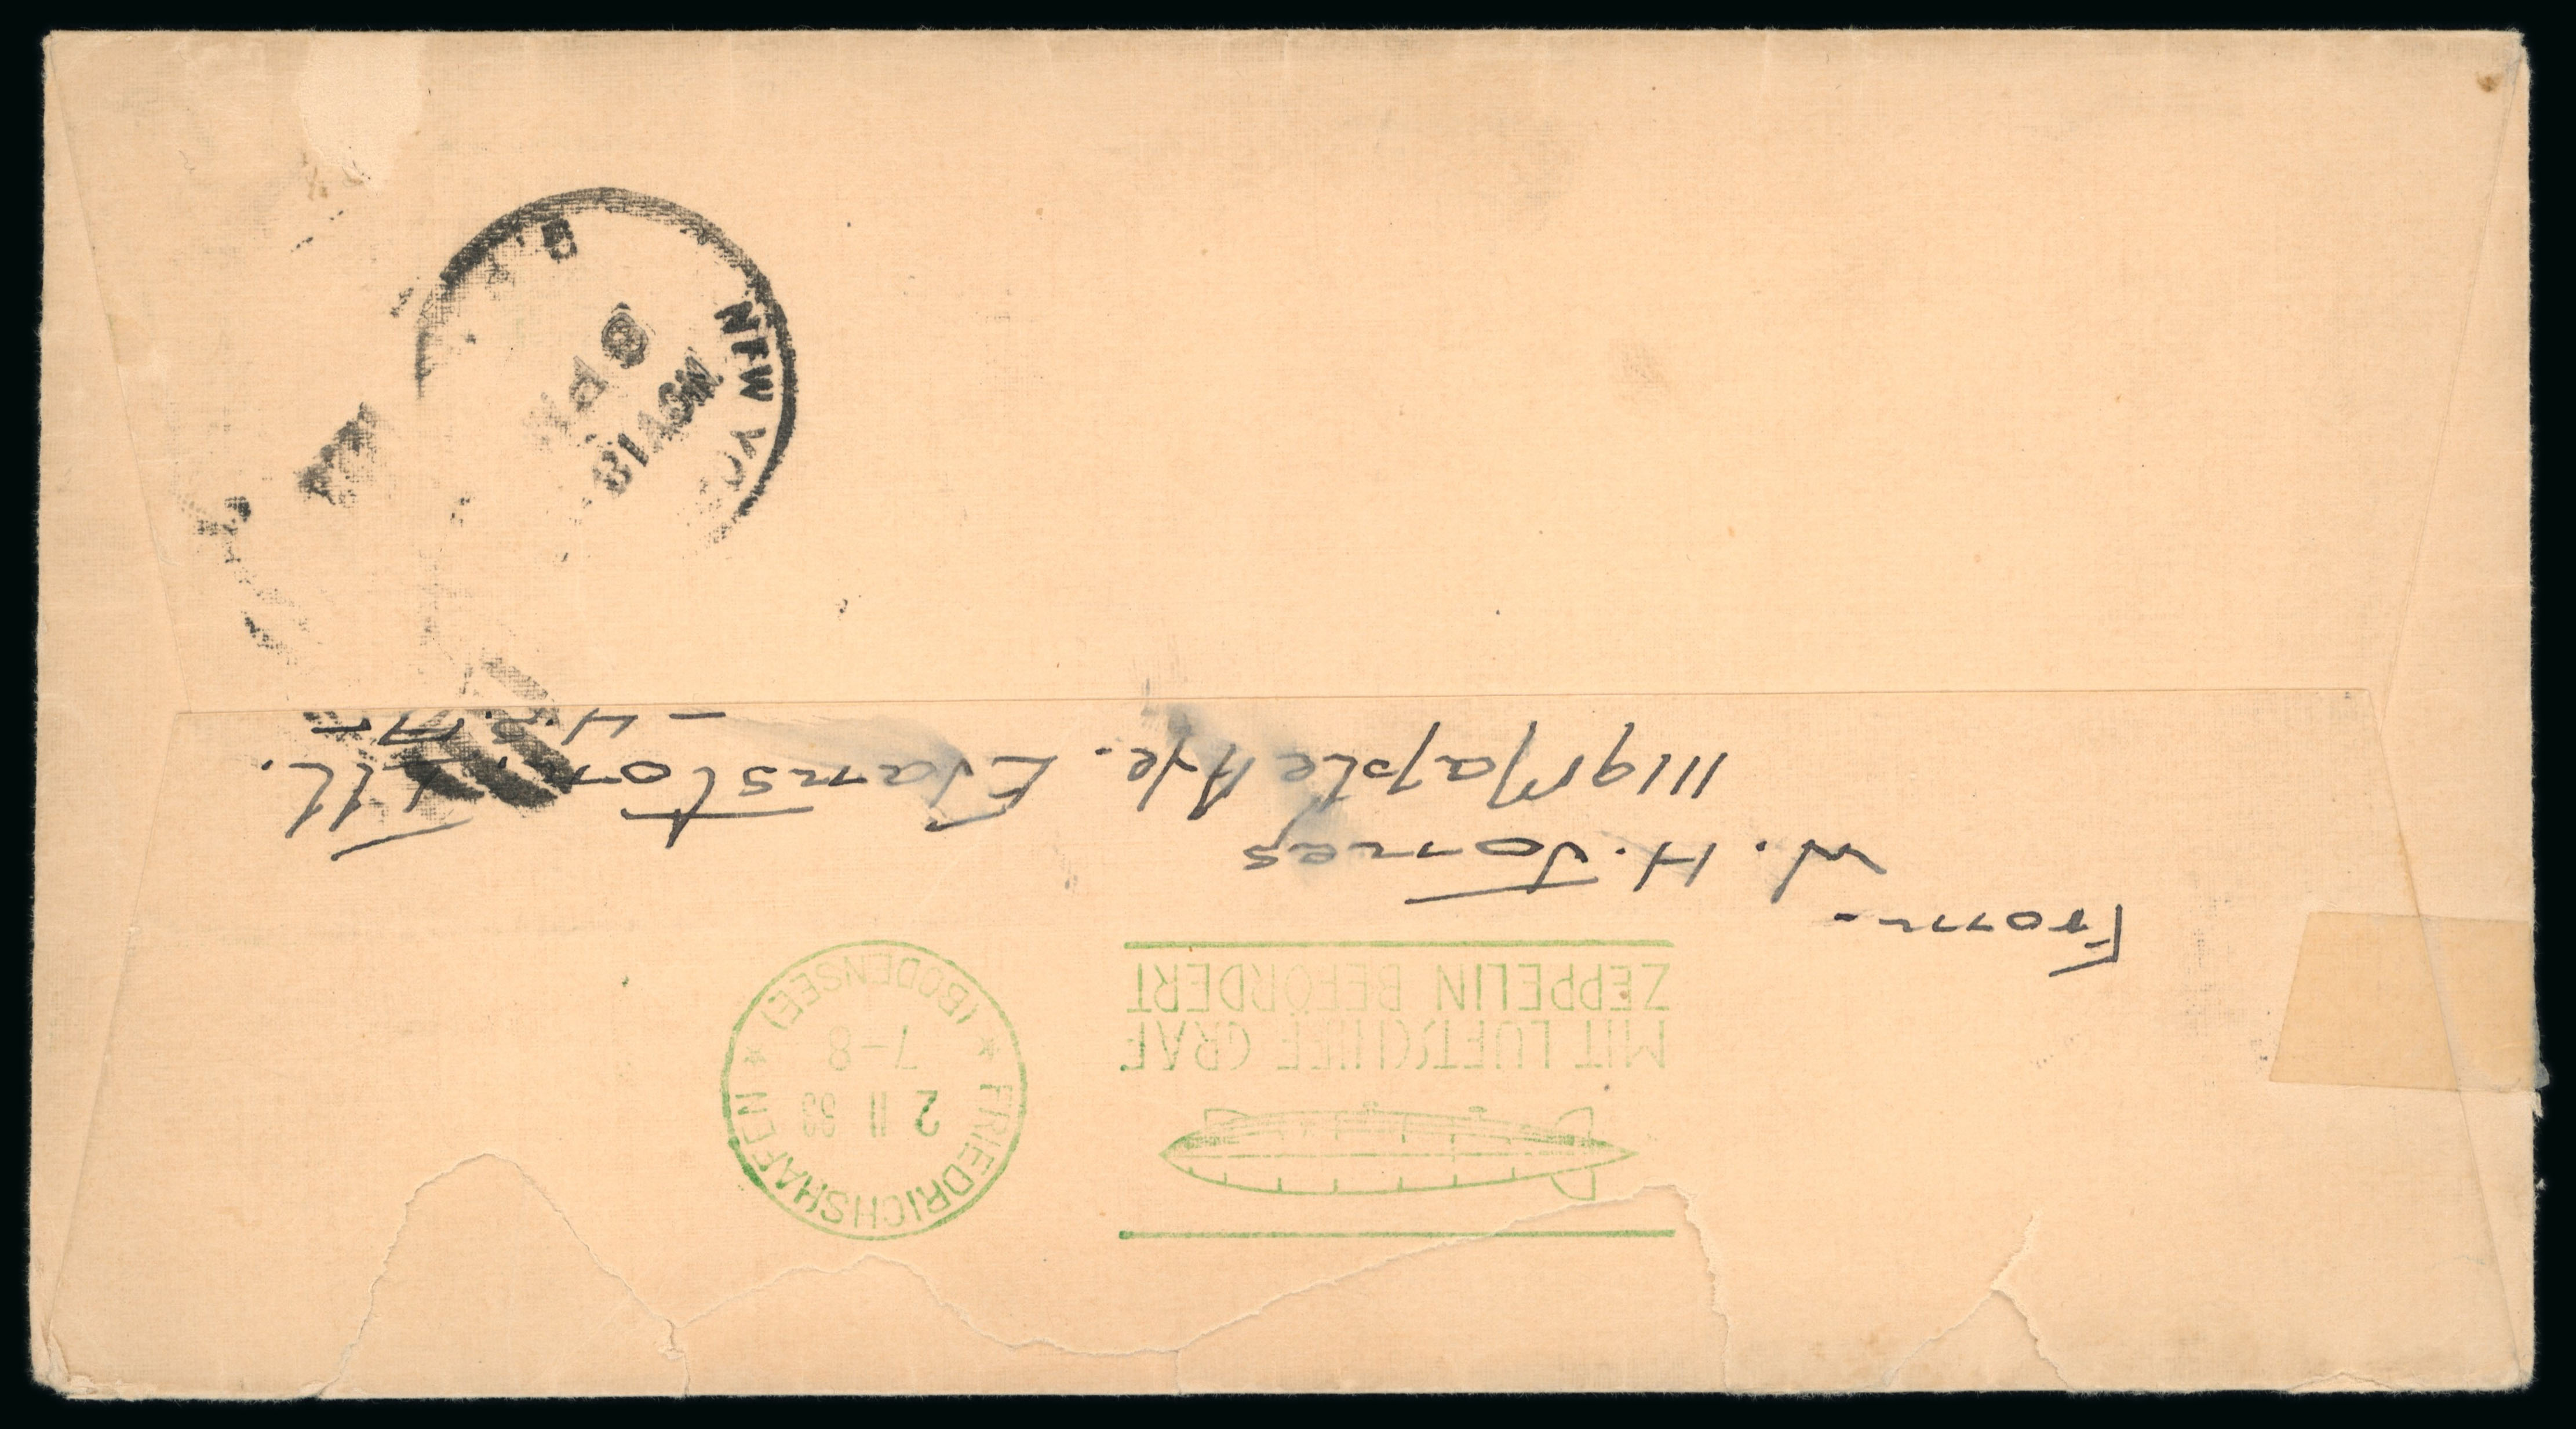 From
W. H. Jones
1119 Maple Ave. Evanston, Ill.
MIT LUFTSCHIFF GRAF
ZEPPELIN BEFÖRDERT
FRIEDRICHSHAFEN
2 11 33
7-8
(BODENSEE)
NEW YO
NOV 18
6 PM